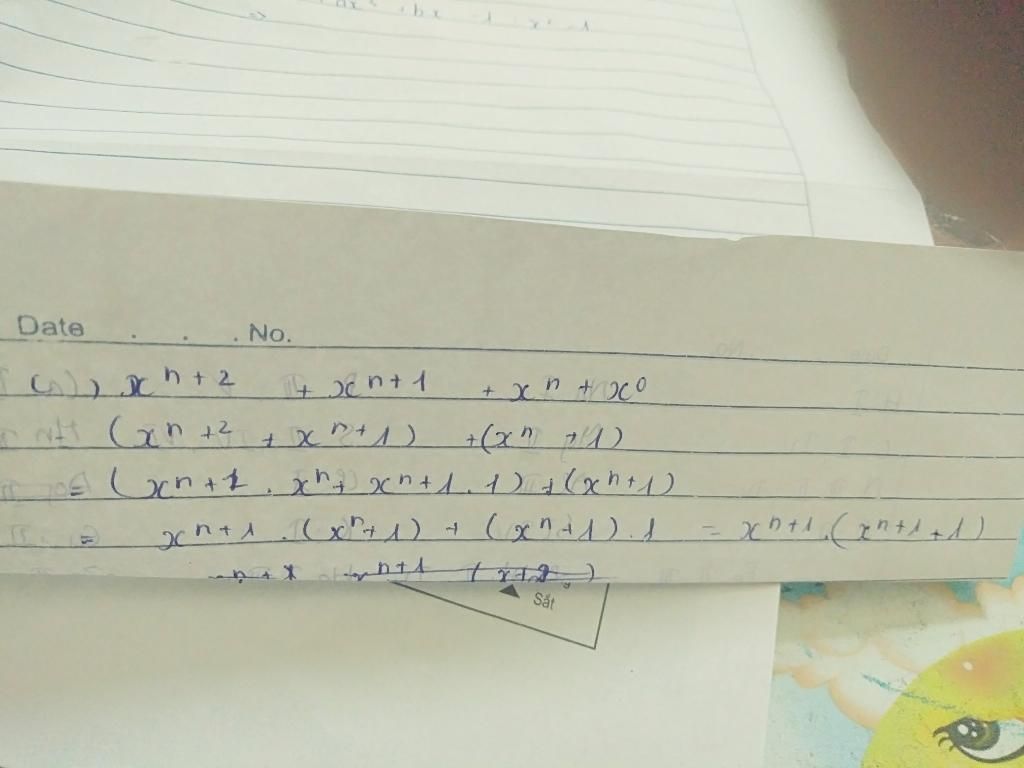 + bx - 1 x² - 1
Date . . . No.
x^{n+2} + x^{n+1} + x^n + x^0
(x^{n+2} + x^{n+1}) + (x^n + 1)
= (x^{n+1} . x^n + x^{n+1} . 1) + (x^n + 1)
= x^{n+1} . (x^n + 1) + (x^n + 1) . 1 = x^{n+1} . (x^{n+1} + 1)
x^{n+1} (x+2)
Sắt